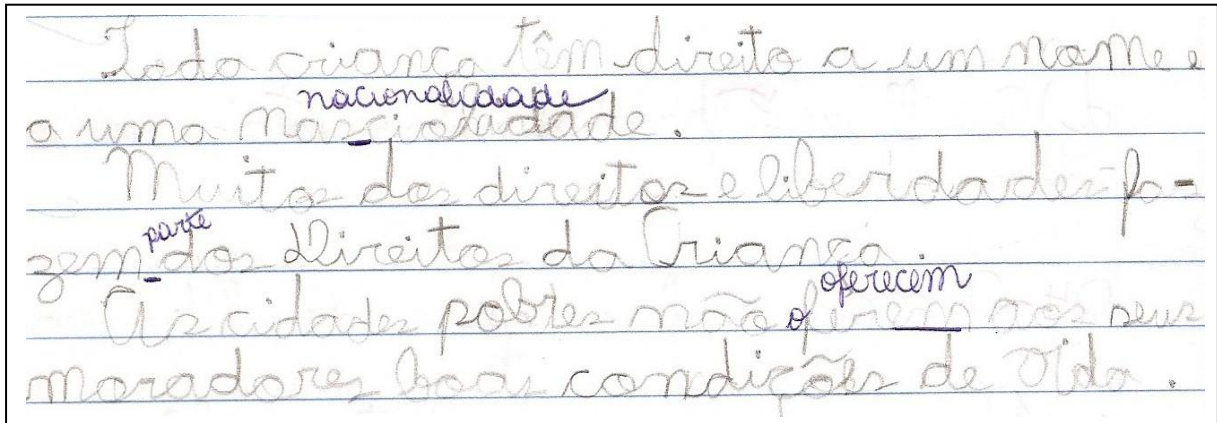 Toda criança têm direito a um nome e
nacionalidade
a uma nascionadade.
Muitos dos direitos e liberdades fa-
parte
zem dos Direitos da Criança
oferecem
As cidades pobres não oferem aos seus
moradores boas condições de vida.